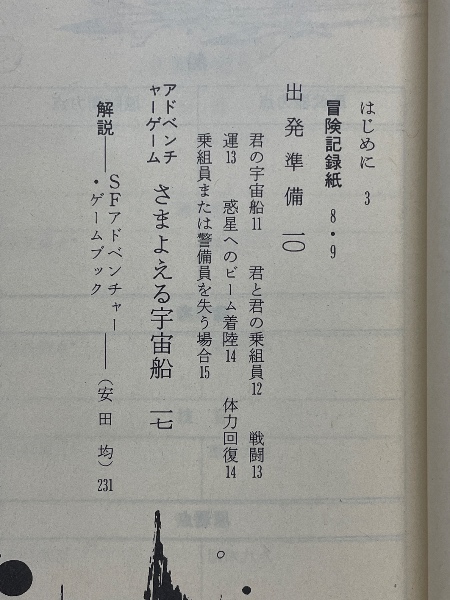 はじめに 3
冒険記録紙 8・9
出発準備 一〇
君の宇宙船11 君と君の乗組員12 戦闘13
運13 惑星へのビーム着陸14 体力回復14
乗組員または警備員を失う場合15
アドベンチャーゲーム さまよえる宇宙船 一七
解説――SFアドベンチャー・ゲームブック――(安田均)231